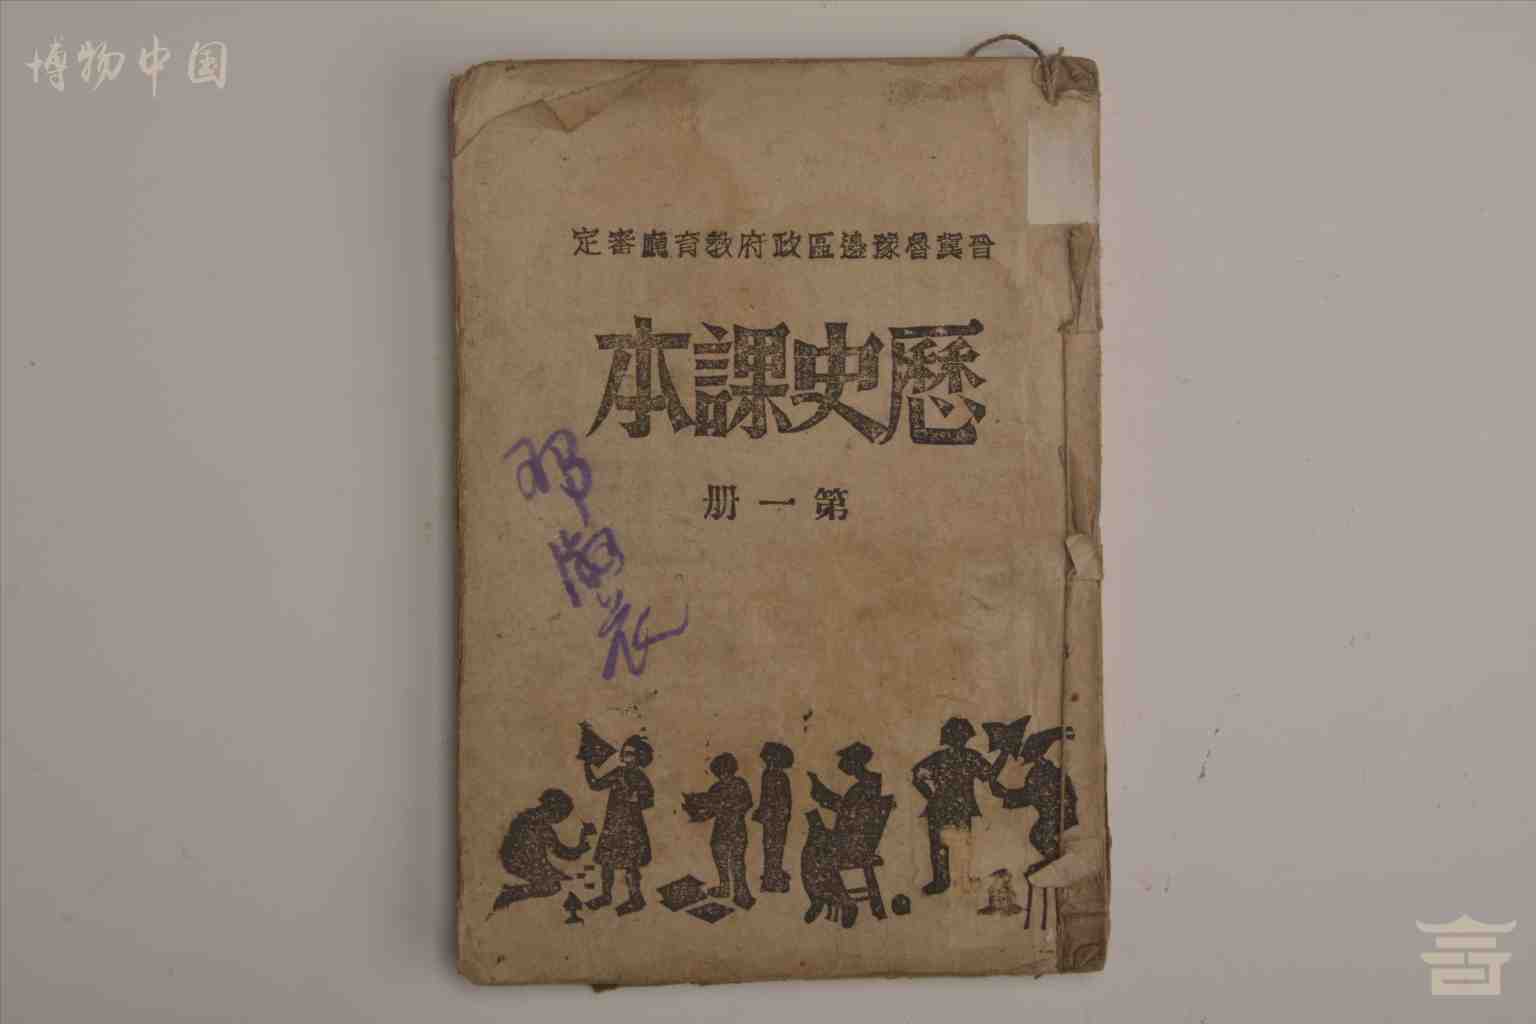 博物中国
晉冀魯豫邊區政府教育廳審定
歷史課本
第一册